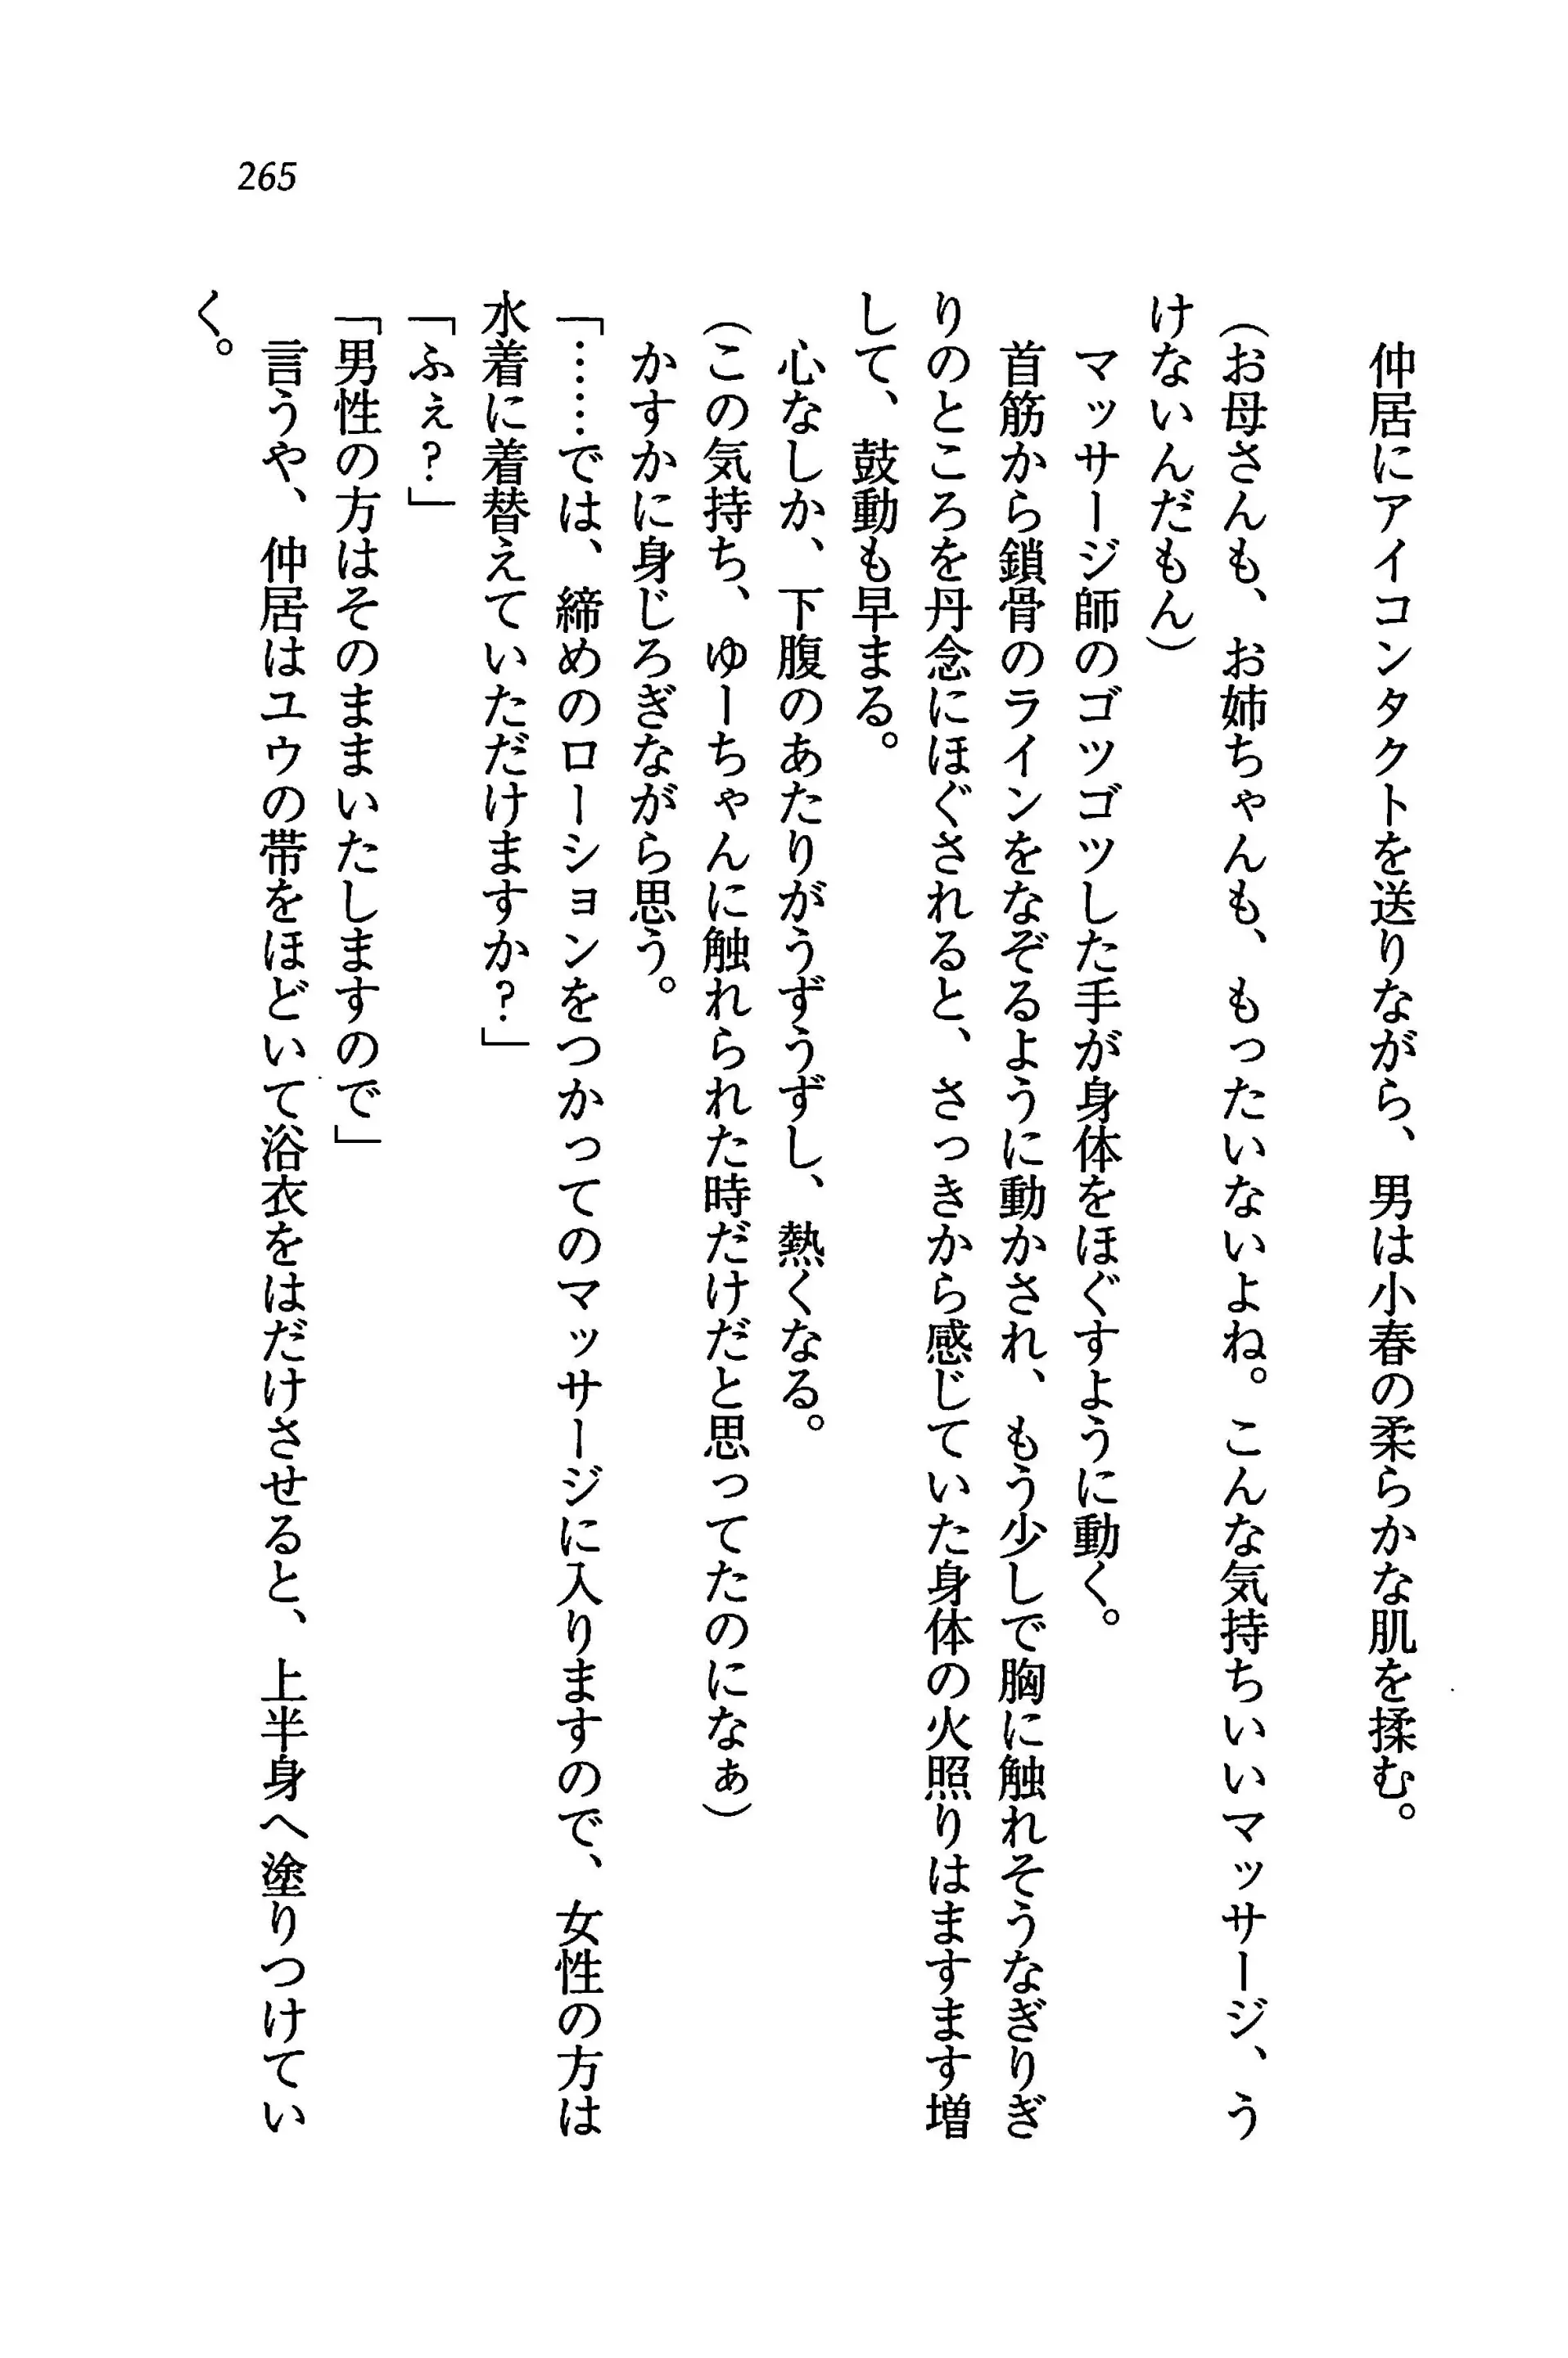 265
仲居にアイコンタクトを送りながら、男は小春の柔らかな肌を揉む。
（お母さんも、お姉ちゃんも、もったいないよね。こんな気持ちいいマッサージ、う
けないんだもん）
マッサージ師のゴツゴツした手が身体をほぐすように動く。
首筋から鎖骨のラインをなぞるように動かされ、もう少しで胸に触れそうなぎりぎ
りのところを丹念にほぐされると、さっきから感じていた身体の火照りはますます増
して、鼓動も早まる。
心なしか、下腹のあたりがうずうずし、熱くなる。
（この気持ち、ゆーちゃんに触れられた時だけだと思ってたのになぁ）
かすかに身じろぎながら思う。
「……では、締めのローションをつかってのマッサージに入りますので、女性の方は
水着に着替えていただけますか？」
「ふぇ？」
「男性の方はそのままいたしますので」
言うや、仲居はユウの帯をほどいて浴衣をはだけさせると、上半身へ塗りつけてい
く。